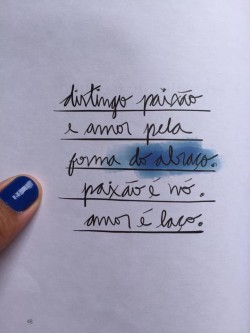 distingo paixão
e amor pela
forma do abraço.
paixão é nó.
amor é laço.